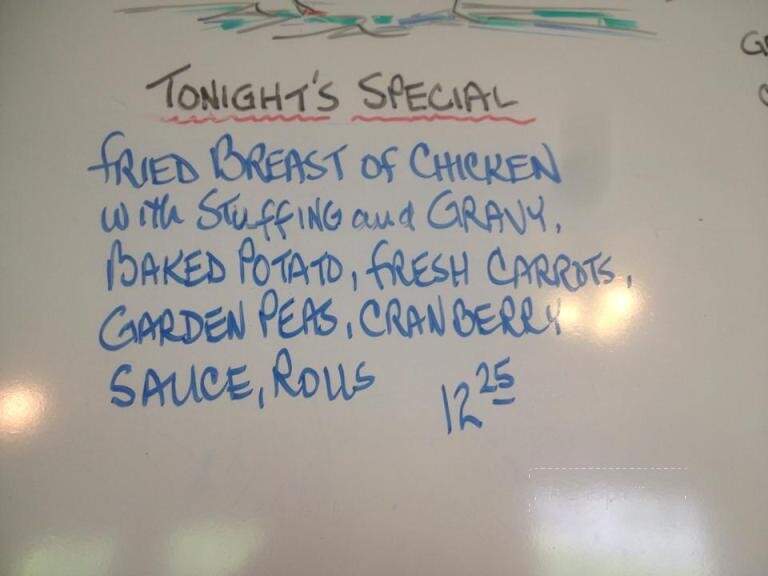 TONIGHT'S SPECIAL
FRIED BREAST OF CHICKEN
with STUFFING and GRAVY,
BAKED POTATO, FRESH CARROTS,
GARDEN PEAS, CRANBERRY
SAUCE, ROLLS 12 25